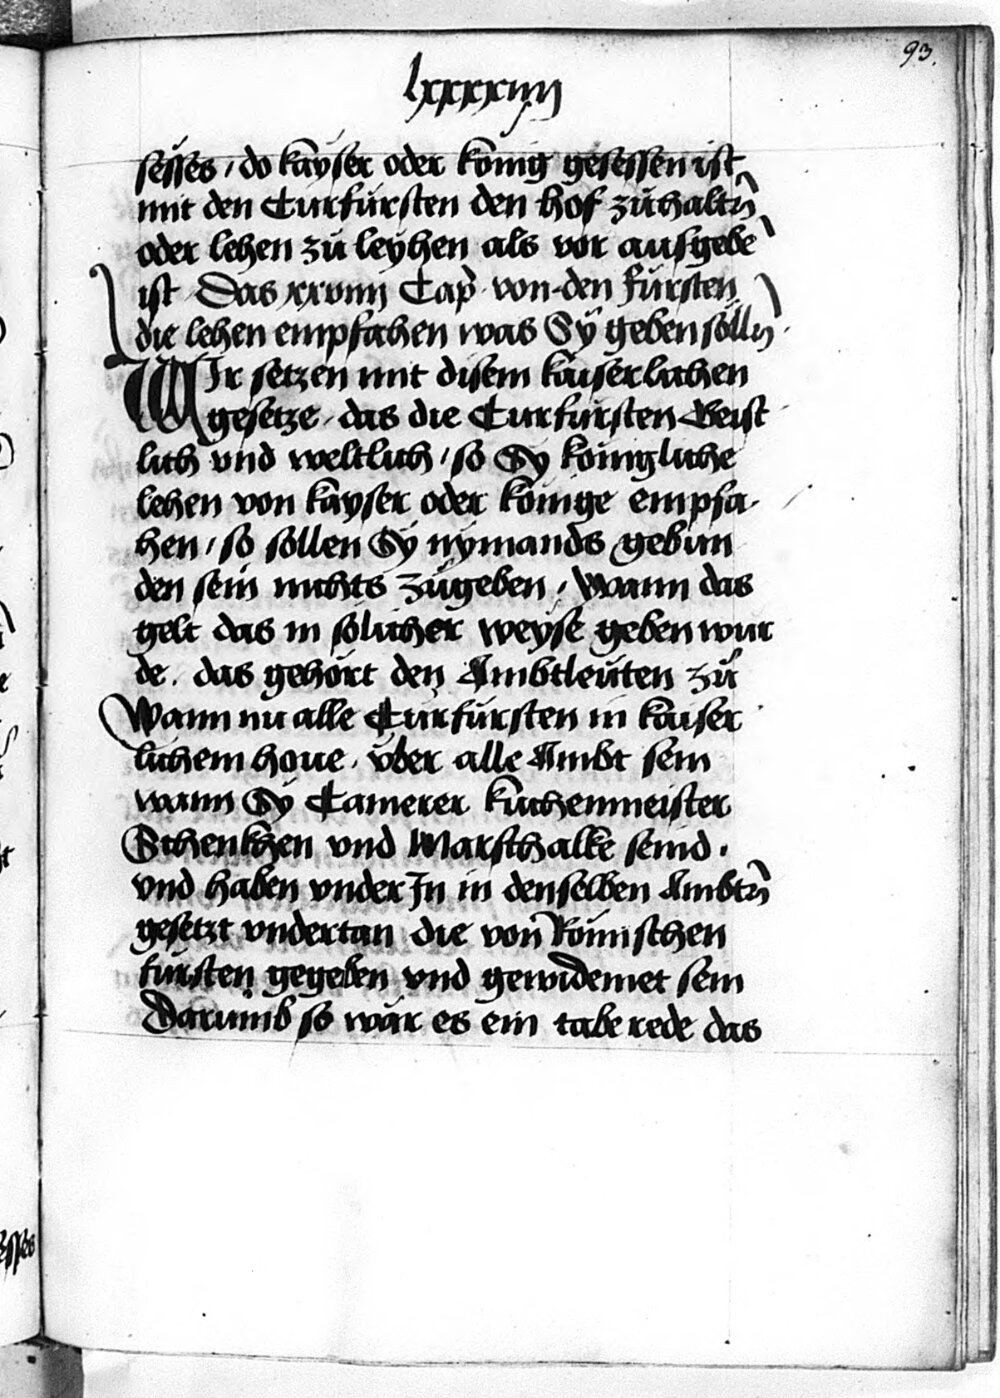 93.
lxxxxiiij
sesses / do kayser oder könig gesessen ist
mit den Curfürsten den hof zuhaltn̄
oder lehen zu leyhen als vor ausgebe
ist Das xxviiij Cap̄ von den fürsten
die lehen empfahen was Sÿ geben solln̄
WIr setzen mit disem kaiserlichen
gesetze das die Curfürsten Geist
lich vnd weltlich / so Sy königliche
lehen von kayser oder könige empfa
hen / so sollen Sÿ nÿmands gebun
den sein nichts zugeben / Wann das
gelt das in sölicher weyse geben wur
de. das gehört den Ambtleuten zu
Wann nu alle Curfürsten in kaiser
lichem houe / über alle Ambt sein
wann Sÿ Camerer kuchenmeister
Schenkhen vnd Marschalke seind .
vnd haben vnder Jn in denselben Ambtn̄
gesetzt vndertan die von Römischen
fürsten gegeben vnd gewidemet sein
Darumb so wär es ein tabe rede das